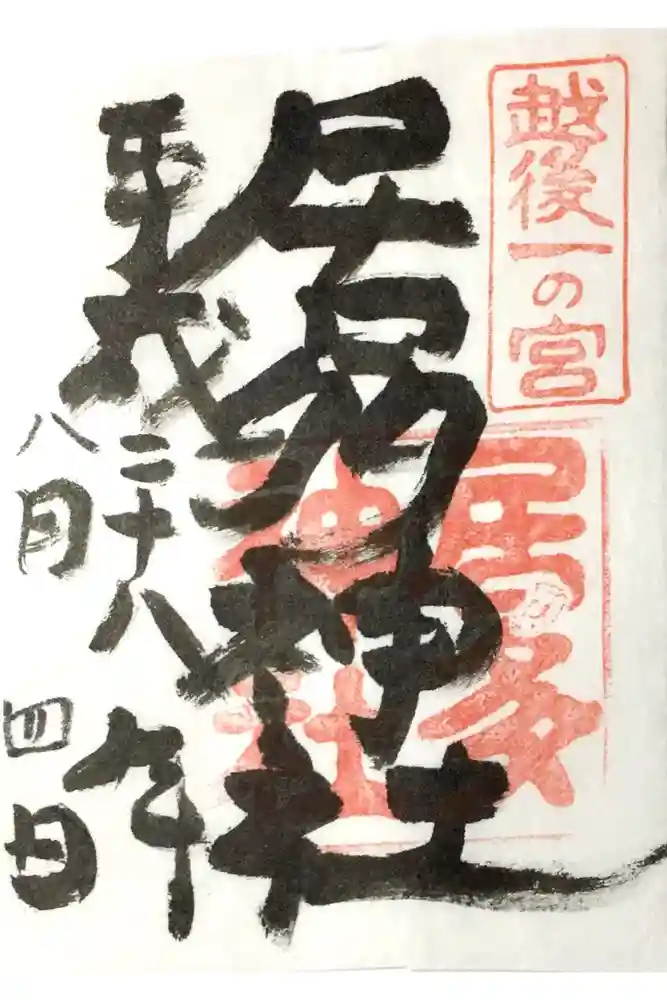 越後一の宮
居多
神社
居多神社
平成二十八年
八月四日